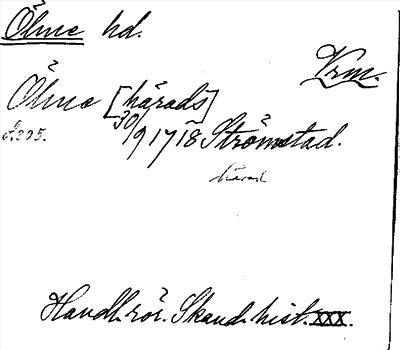 Ölme hd.
Vrm.
Ölme [härads]
s. 205. 30/9 1718 Strömstad.
härad
Handl. rör. Skand. hist. XXX.